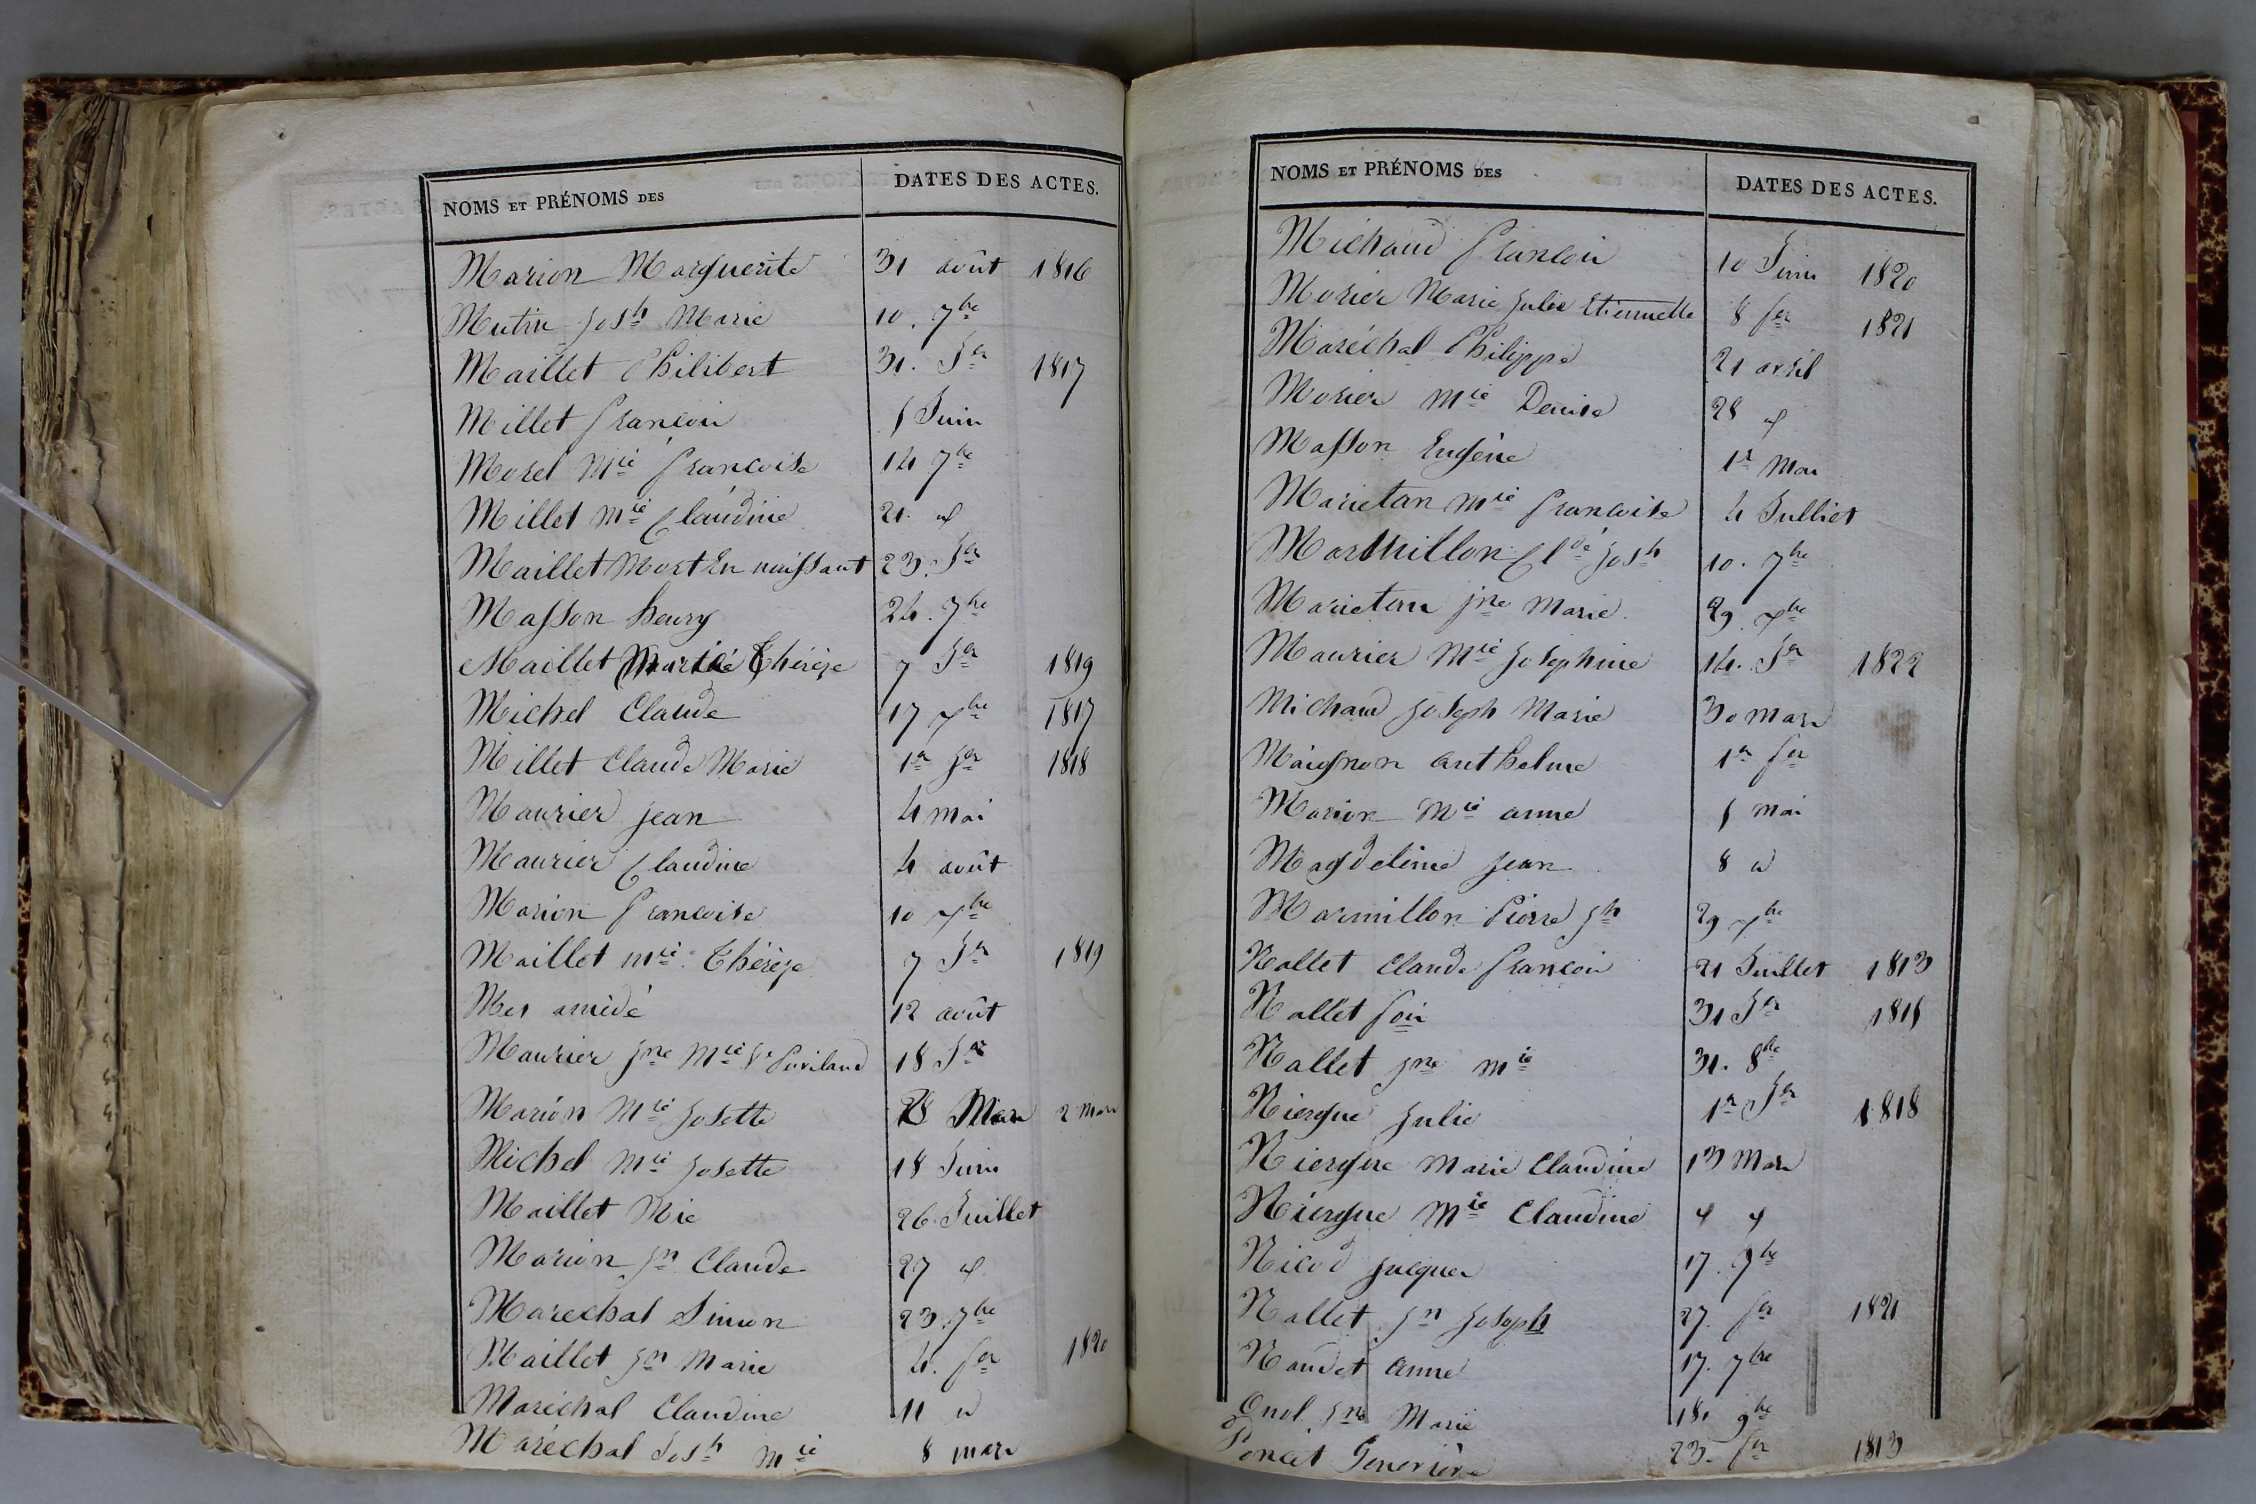 NOMS ET PRÉNOMS DES DATES DES ACTES.
Marion Marguerite 31 août 1816
Mutin Jos.h Marie 10. 7bre
Maillet Philibert 31. Jer 1817
Millet françois 5 Juin
Morel Mie françoise 14 7bre
Millet Mie Claudine 21. d
Maillet Mort En naissant 23. Jer
Masson henry 24. 7bre
Maillet Marie Thérèze 7 Jer 1819
Michel Claude 17 Xbre 1817
Millet Claude Marie 1er Jer 1818
Maurier jean 4 mai
Maurier Claudine 4 août
Marion françoise 10 Xbre
Maillet Mie Thérèze 7 Jer 1819
Mes amédé 12 août
Maurier Jne Mie 18 Jer
Marion Mie Josette 28 Mars 2 mars
Michel Mie Josette 18 Juin
Maillet Mie 26 Juillet
Marion Jn Claude 27 d
Marechal Simon 23. 7bre
Maillet Jn Marie 4. fer 1820
Maréchal Claudine 11 d
Maréchal Josh Mie 8 mars
NOMS ET PRÉNOMS DES DATES DES ACTES.
Michaud françois 10 Juin 1820
Morier Marie Julie Etiennette 8 fer 1821
Maréchal Philippe 21 avril
Morier Mie Denise 28 d
Masson Eugénie 1er Mai
Marietan Mie françoise 4 Julliet
Marmillon Cl.de Josh 10. 7bre
Marietan jne Marie 29 Xbre
Maurier Mie Josephine 14. Jer 1822
Michaud Joseph Marie 30 mars
Maignon anthelme 1er fer
Marion Mie anne 5 mai
Magdeleine Jean 8 d
Marmillon Pierre Jh 29 Xbre
Nallet Claude françois 21 Juillet 1813
Nallet fois 31 Jer 1815
Nallet Jne Mie 31. 8bre
Niergue Julie 1er Jer 1818
Niergue Marie Claudine 13 Mars
Niergue Mie Claudine d d
Nicod Jacques 17. 9bre
Nallet Jn Joseph 27. fer 1821
Naudet anne 17. 7bre
Onol Jne Marie 18. 9bre
Poncet Geneviève 23. fer 1813